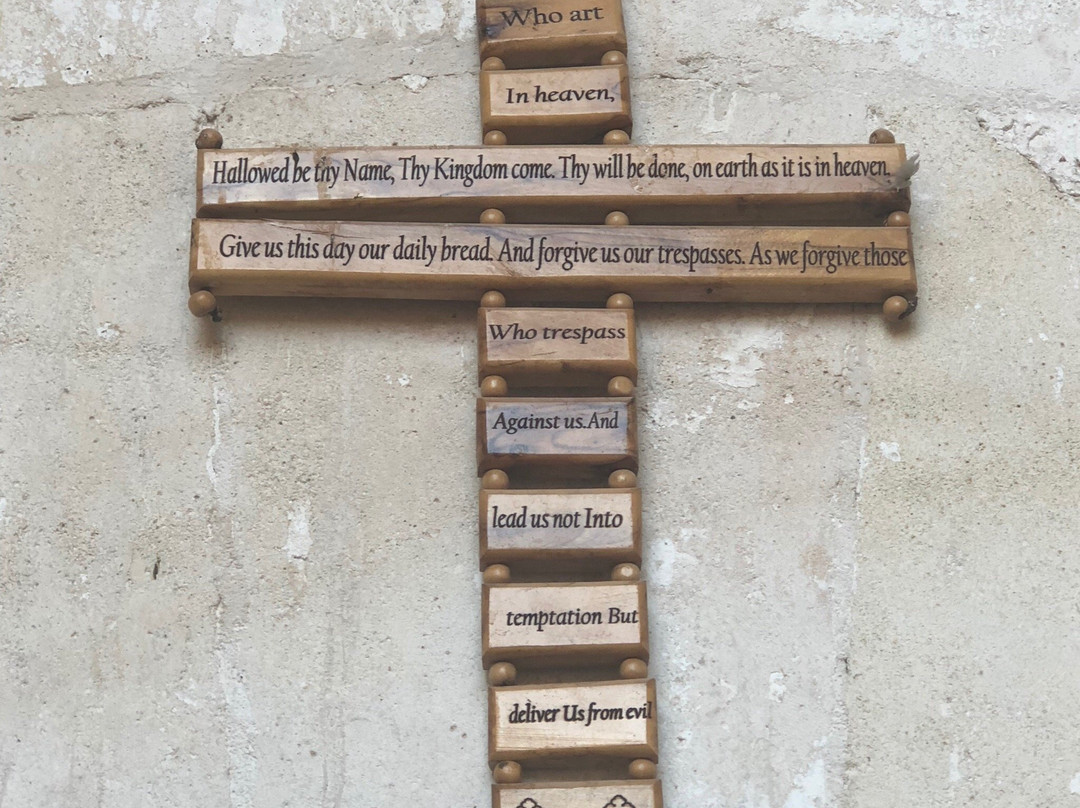 Who art
In heaven,
Hallowed be thy Name, Thy Kingdom come. Thy will be done, on earth as it is in heaven.
Give us this day our daily bread. And forgive us our trespasses. As we forgive those
Who trespass
Against us.And
lead us not Into
temptation But
deliver Us from evil